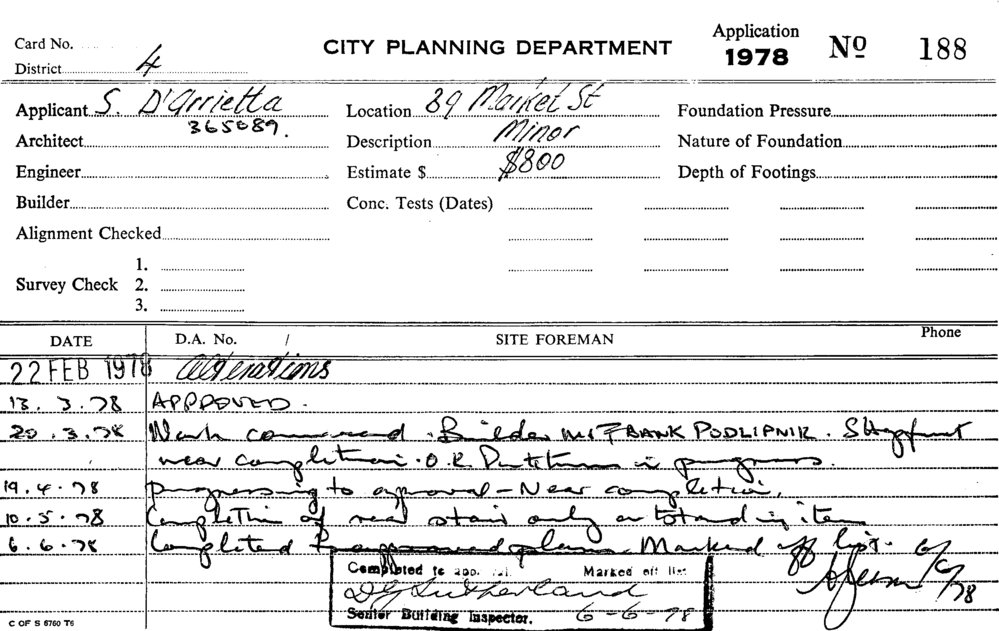 Card No.
CITY PLANNING DEPARTMENT
Application
1978 Nº 188
District 4
Applicant S. D'Arrietta
365089.
Location 89 Market St
Foundation Pressure
Architect
Description Minor
Nature of Foundation
Engineer
Estimate $ $800
Depth of Footings
Builder
Conc. Tests (Dates)
Alignment Checked
Survey Check
1.
2.
3.
DATE D.A. No. / SITE FOREMAN Phone
22 FEB 1978 Alterations
13.3.78 APPROVED.
20.3.78 Work commenced. Builder Mr FRANK PODLIPNIK. Shopfront
near completion. O.K. Partitions in progress.
19.4.78 Progressing to approval - Near completion.
10.5.78 Completion of rear stair only outstanding item
6.6.78 Completed to approved plans. Marked off list.
6/6/78
Completed to app. Marked off list
D G Sutherland
Senior Building Inspector. 6-6-78
C OF S 6760 T6